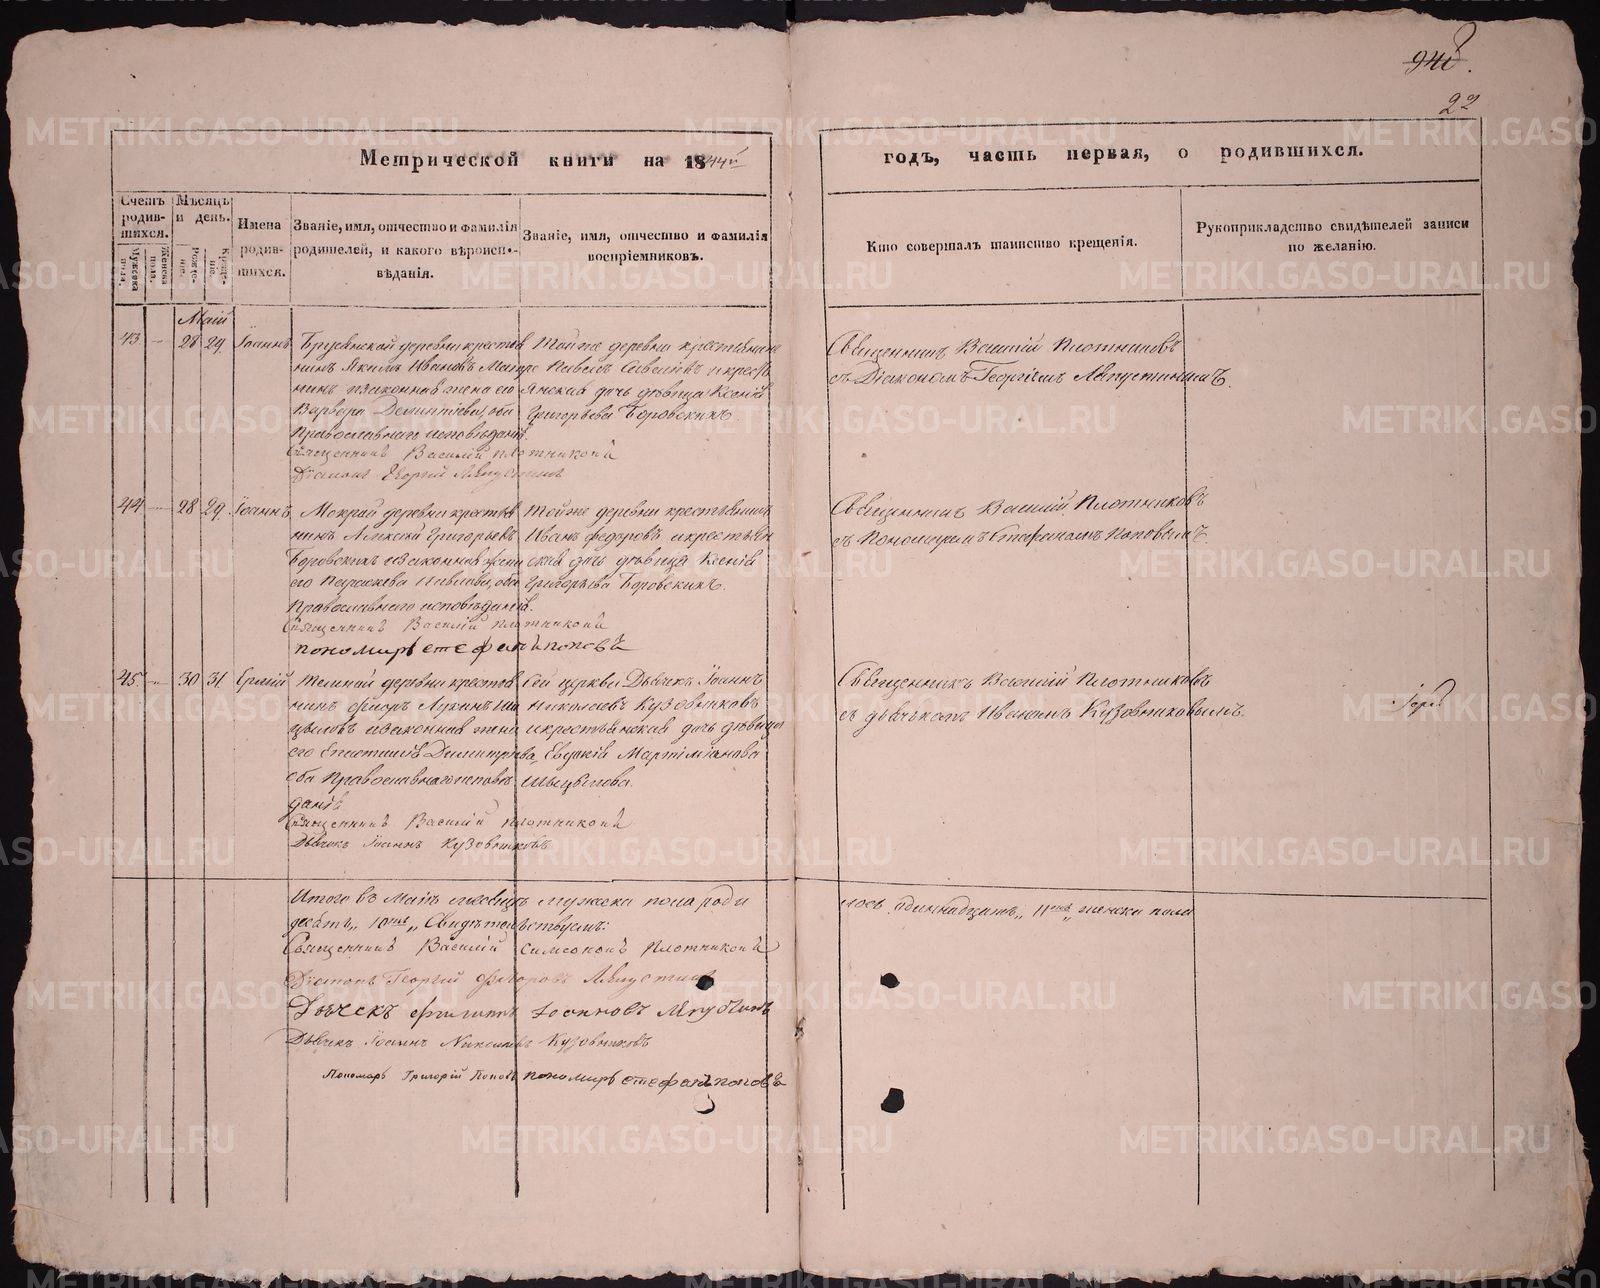 22
Метрической книги на 1844й
годъ, часть первая, о родившихся.
Счетъ родив-шихся.
Мужеска пола.
Женска пола.
Мѣсяцъ и день.
Рожде-ніе.
Креще-ніе.
Имена родив-шихся.
Званіе, имя, отчество и фамилія
родителей, и какого вѣроиспо-
вѣданія.
Званіе, имя, отчество и фамилія
воспріемниковъ.
Кто совершалъ таинство крещенія.
Рукоприкладство свидѣтелей записи
по желанію.
Маій
43 28 29 Іоаннъ
деревни крестья
нинъ Якимъ Ивановъ
и законная жена его
Варвара Дементіева, оба
Православнаго исповѣданія.
Священникъ Василій Плотниковъ
Діаконъ Георгій Августинъ
Той же деревни крестьянинъ
Павелъ Савинъ и кресть
янская дочь дѣвица Ксенія
Григорьева Боровскихъ
Священникъ Василій Плотниковъ
съ Діакономъ Георгіемъ
44 28 29 Іоаннъ
Мокрой деревни крестья
нинъ Алексѣй Григорьевъ
Боровскихъ и законная жена
его Павлова, оба
Православнаго исповѣданія.
Священникъ Василій Плотниковъ
пономарь стефанъ поповъ
Той же деревни крестьянинъ
Иванъ Федоровъ и крестьян
ская дочь дѣвица Ксенія
Григорьева Боровскихъ.
Священникъ Василій Плотниковъ
съ Пономаремъ Стефаномъ Поповымъ.
45 30 31 Ермій
деревни крестья
нинъ Лукинъ
и законная жена
его Димитріева
оба Православнаго исповѣ
данія
Священникъ Василій Плотниковъ
Дьячекъ Іоаннъ Кузовниковъ
Сей церкви Дьячекъ Іоаннъ
Николаевъ Кузовниковъ
и крестьянская дочь дѣвица
Евдокія Мартиміанова
Священникъ Василій Плотниковъ
съ дьячкомъ Иваномъ Кузовниковымъ.
Итого въ Маіѣ мѣсяцѣ мужеска пола роди
лось одиннадцать „11ть„ женска пола
десять „10ть„ Свидѣтельствуемъ:
Священникъ Василій Симеоновъ Плотниковъ
Діаконъ Георгій Августинъ
Дьячекъ Филиппъ Іоанновъ
Дьячекъ Іоаннъ Николаевъ Кузовниковъ
Пономарь Григорій Поповъ пономарь стефанъ поповъ
METRIKI.GASO-URAL.RU